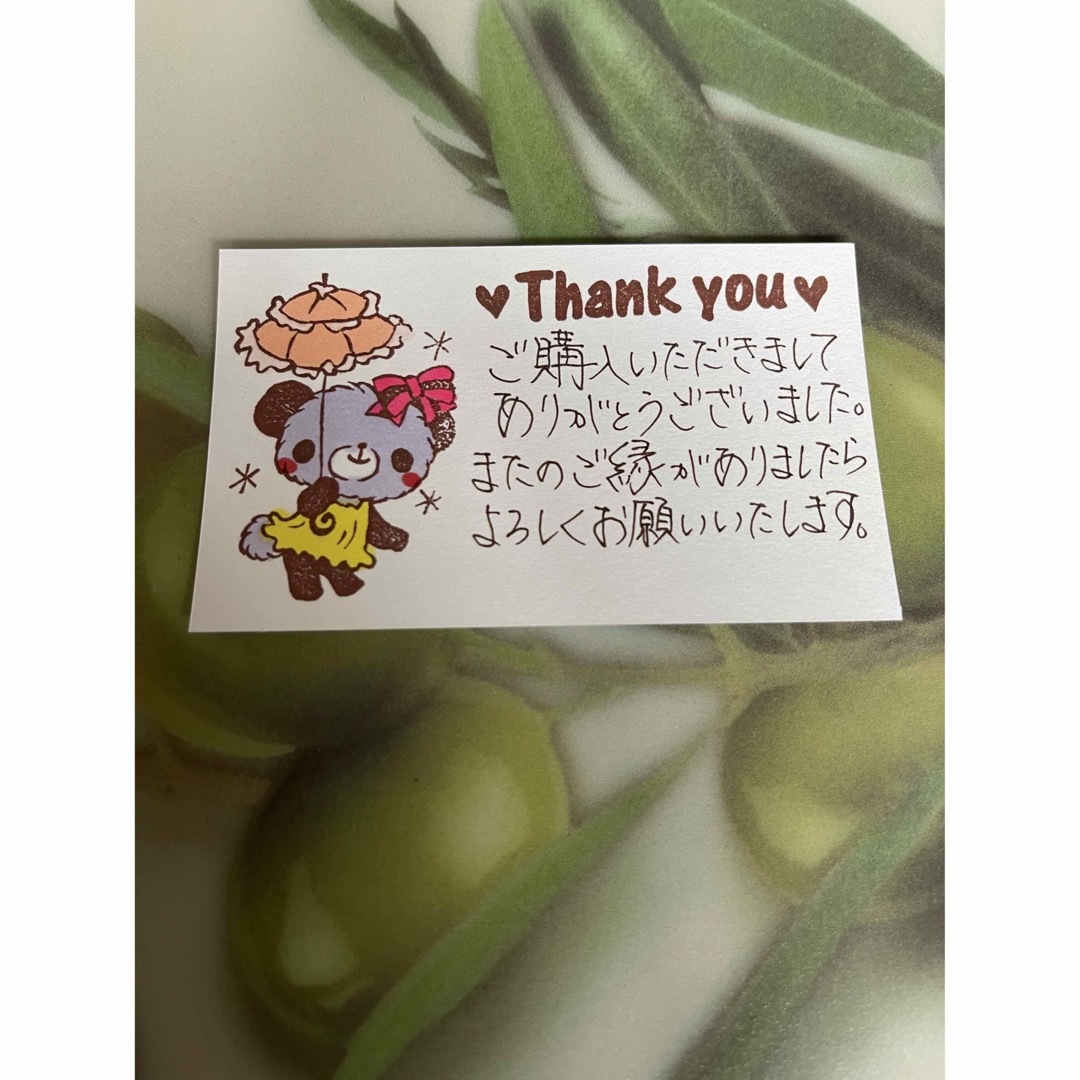 ♥Thank you♥
ご購入いただきまして
ありがとうございました。
またのご縁がありましたら
よろしくお願いいたします。